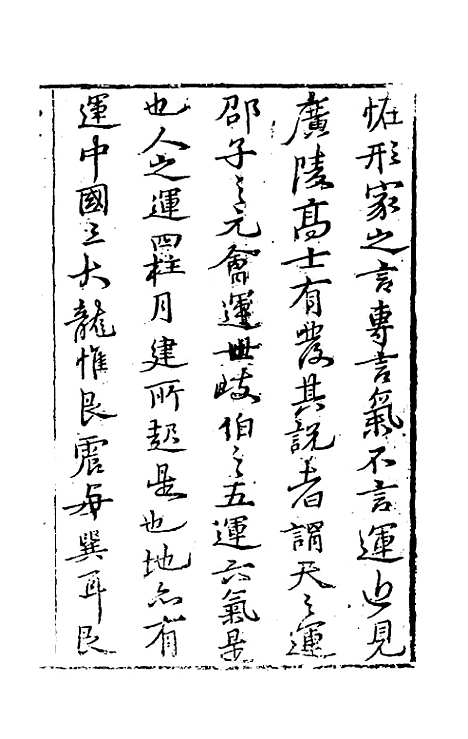 怪形家之言專言氣不言運近見
廣陵高士有發其說者謂天之運
邵子之元會運世岐伯之五運六氣是
也人之運四柱月建所起是也地亦有
運中國三大龍惟艮震與巽耳艮